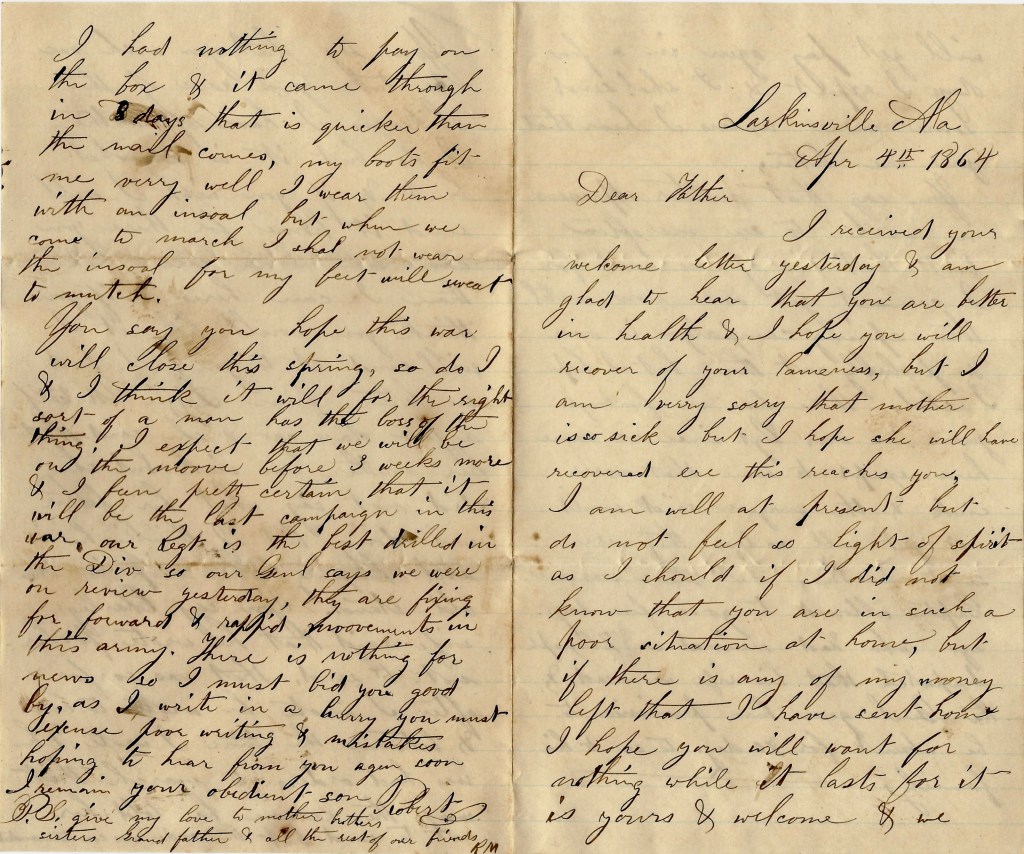 Larkinsville Ala
Apr 4th 1864
Dear Father
I received your
welcome letter yesterday & am
glad to hear that you are better
in health & I hope you will
recover of your lameness, but I
am verry sorry that mother
is so sick but I hope she will have
recovered ere this reaches you,
I am well at present but
do not feel so light of spirit
as I should if I did not
know that you are in such a
poor situation at home, but
if there is any of my money
left that I have sent home
I hope you will want for
nothing while it lasts for it
is yours & welcome & we
I had nothing to pay on
the box & it came through
in 8 days that is quicker than
the mail comes, my boots fit
me verry well I wear them
with an insoal but when we
come to march I shal not wear
the insoal for my feet will sweat
to mutch.
You say you hope this war
will close this spring, so do I
& I think it will for the right
sort of a man has the boss of the
thing, I expect that we will be
on the moove before 3 weeks more
& I feen prett certain that it
will be the last campaign in this
war, our Regt is the best drilled in
the Div so our Genl says we were
on review yesterday, they are fixing
for forward & rappid moovements in
this army. There is nothing for
news so I must bid you good
by, as I write in a hurry you must
excuse poor writing & mistakes
hoping to hear from you agen soon
I remain your obedient son Robert
P.S. give my love to mother brothers
sisters Grand father & all the rest of our friends
RM